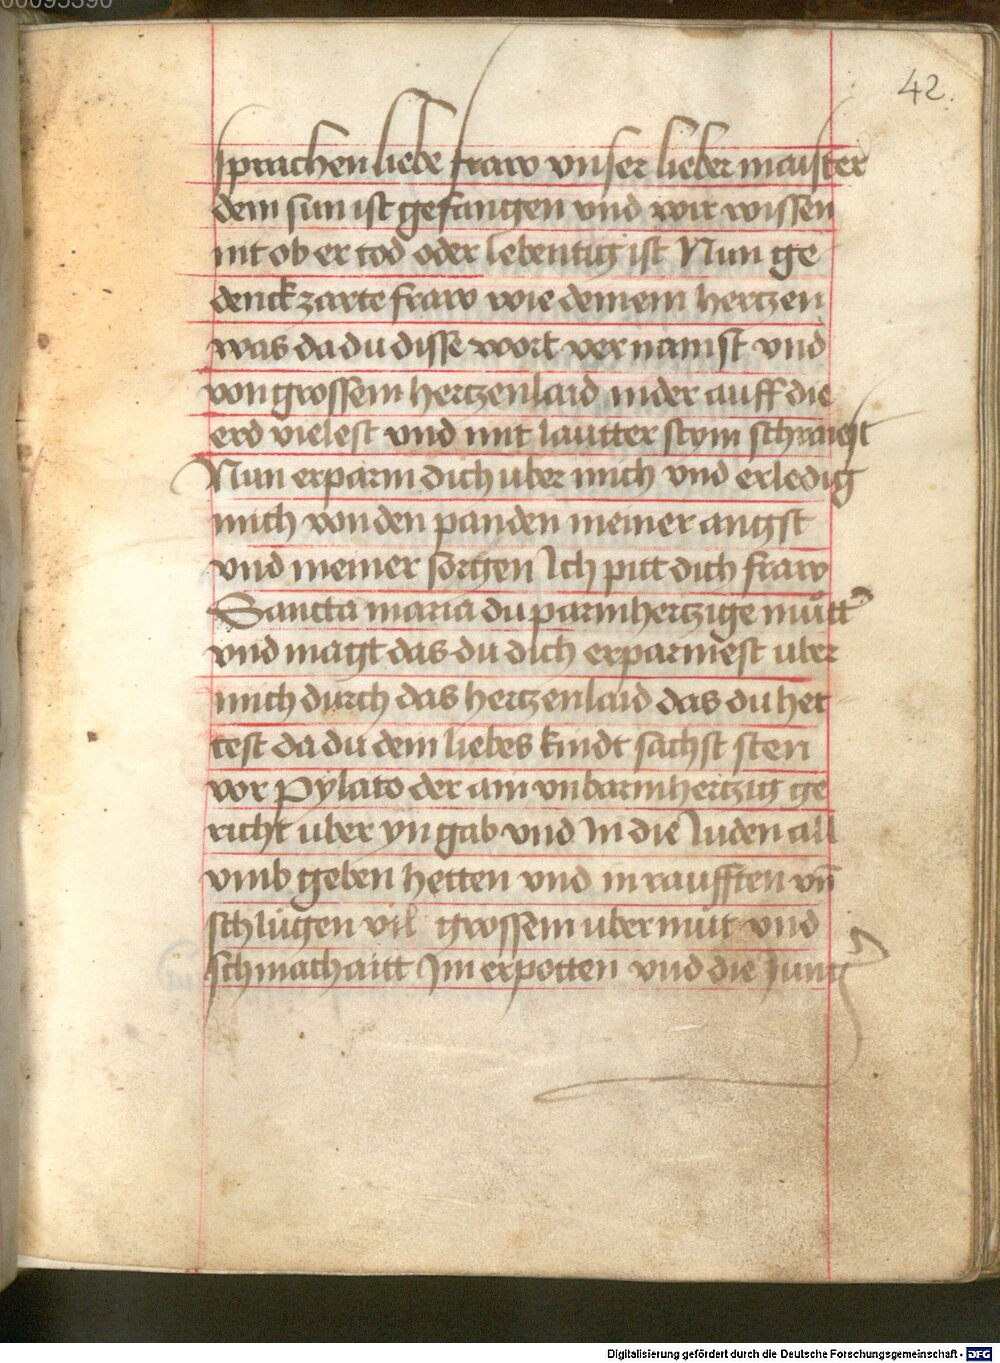 42.
sprachen liebe fraw vnser lieber maister
dein sun ist gefangen vnd wir wissen
nit ob er tod oder lebentig ist Nun ge
denck zarte fraw wie deinem hertzen
was da du disse wort vernamst vnd
von grossem hertzenlaid nider auff die
erd vielest vnd mit lautter stym schraiest
Nun erparm dich uber mich vnd erledig
mich von den panden meiner angst
vnd meiner sorgen Ich pitt dich fraw
Sancta maria du parmhertzige můtt
vnd magt das du dich erparmest uber
mich durch das hertzenlaid das du het
test da du dein liebes kindt sachst sten
vor Pylato der ain vnbarmhertzig ge
richt uber yn gab vnd In die Juden all
vmb geben hetten vnd in raufften vn̄
schlůgen vil grossem ubermůt vnd
schmachaitt Im erpotten vnd die Jung
Digitalisierung gefördert durch die Deutsche Forschungsgemeinschaft - DFG